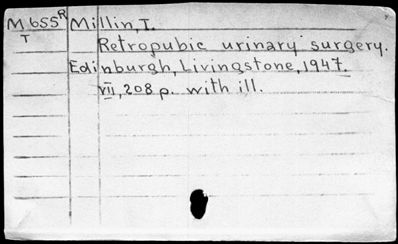 M 655R Millin, T.
T
Retropubic urinary surgery.
Edinburgh, Livingstone, 1947.
VII, 208 p. with ill.